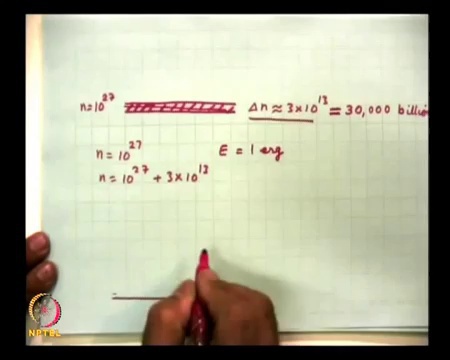 n=10^27 Δn ≈ 3×10^13 = 30,000 billion
n = 10^27 E = 1 erg
n = 10^27 + 3×10^13
NPTEL